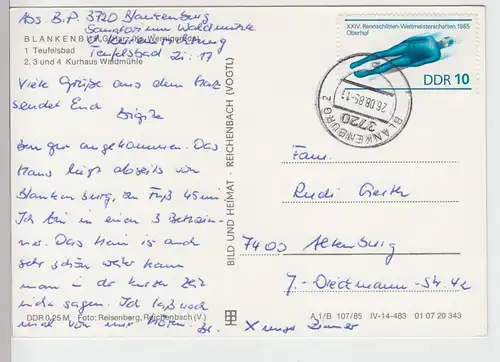 Abs. B.P. 3720 Blankenburg
Sanatorium Waldmühle
BLANKENBURG/Harz (Kr. Wernigerode)
1 Teufelsbad
Teufelsbad Zi. 17
2, 3 und 4 Kurhaus Waldmühle
Viele Grüße aus dem Harz
sendet Euch
Brigitte
Bin gut angekommen. Das
Haus liegt abseits von
Blankenburg, zu Fuß 45 min
Ich bin in einem 3 Bettzim-
mer. Das Heim ist auch
sehr schön weiter kann
man in der kurzen Zeit
nicht sagen. Ich laß noch
mal von mir hören. Br.
DDR 0,25 M Foto: Reisenberg, Reichenbach (V.)
BILD UND HEIMAT · REICHENBACH (VOGTL)
XXIV. Rennschlitten-Weltmeisterschaften 1985
Oberhof
DDR 10
BLANKENBURG 2
26.08.85
3720
Fam.
Rudi
7400 Altenburg
J.-Dieckmann-Str. 42
A1/B 107/85 IV-14-483 01 07 20 343